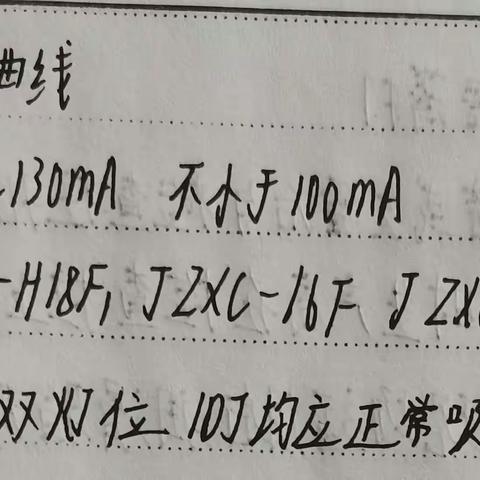 曲线
130mA 不小于100mA
-H18F, JZXC-16F JZX
双灯位 1DJ均应正常吸